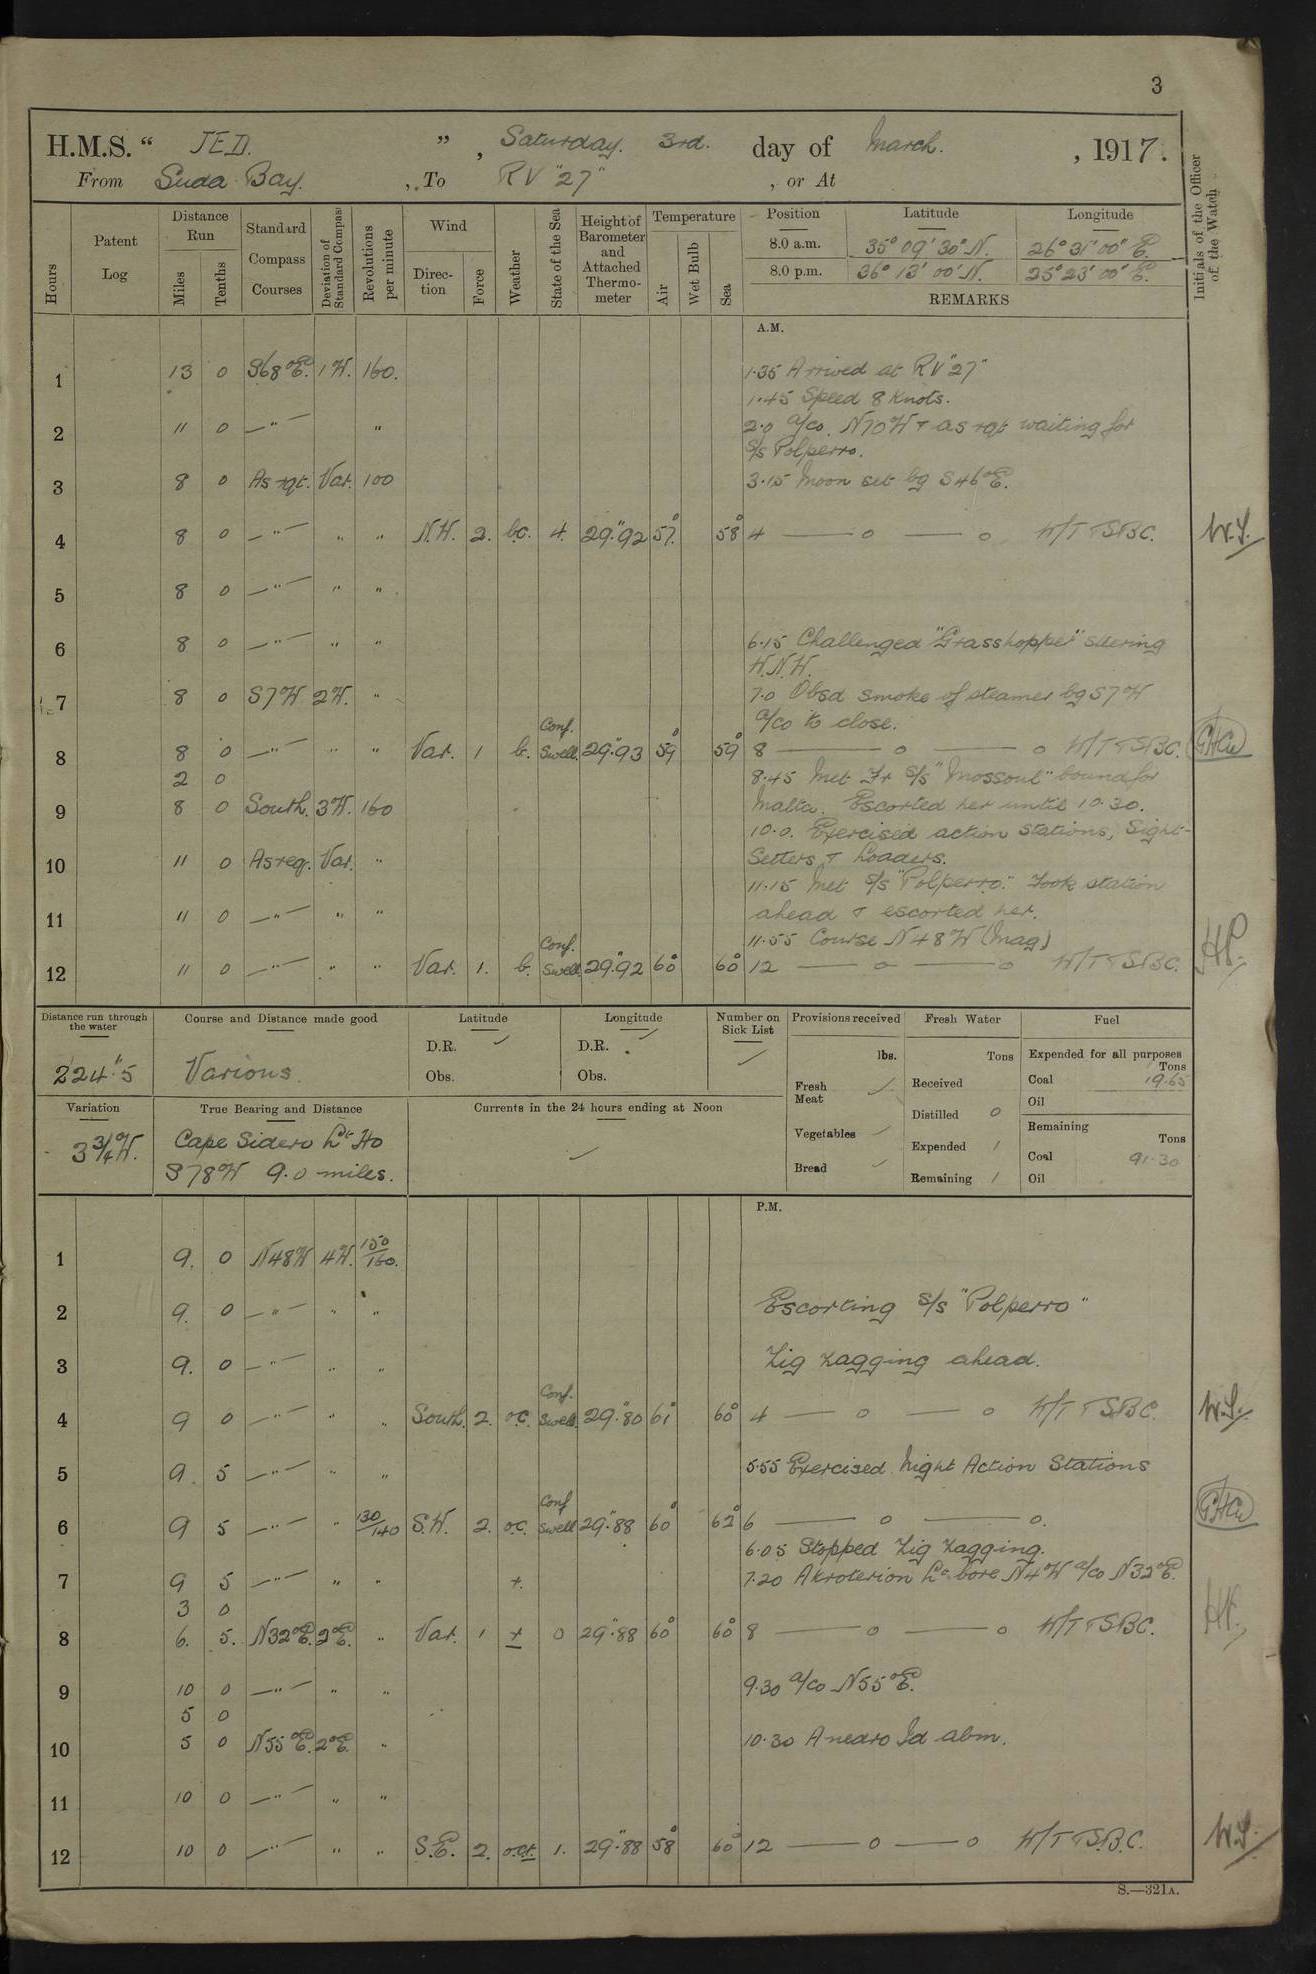 3
H.M.S. “ JED. ” , Saturday. 3rd. day of March. , 1917.
From Suda Bay. , To RV "27" , or At
Initials of the Officer of the Watch
Hours Patent Log Distance Run Miles Tenths Standard Compass Courses Deviation of Standard Compass Revolutions per minute Wind Direction Force Weather State of the Sea Height of Barometer and Attached Thermometer Temperature Air Wet Bulb Sea
Position Latitude Longitude
8.0 a.m. 35° 09' 30" N. 26° 31' 00" E.
8.0 p.m. 36° 13' 00" N. 25° 23' 00" E.
REMARKS
A.M.
1 13 0 S68°E. 1W. 160. 1.35 Arrived at RV "27"
1.45 Speed 8 Knots.
2 " 0 —"— " 2.0 a/co. N70W & as rqt waiting for
S/s Polperro.
3 8 0 As rqt. Var. 100 3.15 Moon set bg S46°E.
4 8 0 —"— " " N.W. 2. bc. 4. 29".92 57° 58° 4 — o — o W/T & SBC. W.S.
5 8 0 —"— " "
6 8 0 —"— " " 6.15 Challenged "Grasshopper" steering
W.N.W.
7 8 0 S7W 2W. " 7.0 Obsd smoke of steamer bg S7W
a/co to close.
8 8 0 —"— " " Var. 1. b. Conf. Swell. 29".93 59° 59° 8 — o — o W/T & SBC.
2 0 8.45 Met Fr S/s "Mossoul" bound for
9 8 0 South. 3W. 160 Malta. Escorted her until 10.30.
10.0. Exercised action stations, Sight-
10 " 0 As req. Var. " Setters & Loaders.
11.15 Met S/s "Polperro." Took station
11 " 0 —"— " " ahead & escorted her.
11.55 Course N48W (Mag)
12 " 0 —"— " " Var. 1. b. Conf. Swell. 29".92 60° 60° 12 — o — o W/T & SBC. HP.
Distance run through the water Course and Distance made good Latitude Longitude Number on Sick List Provisions received Fresh Water Fuel
224".5 Various.
D.R. ✓ D.R.
Obs. Obs.
lbs. Tons Expended for all purposes Tons
Fresh Meat Received Coal 19.65
Oil
Variation True Bearing and Distance Currents in the 24 hours ending at Noon
Distilled 0 Remaining Tons
3 3/4°W. Cape Sidero Lt Ho
S78W 9.0 miles.
Vegetables Expended Coal 91.30
Bread Remaining Oil
P.M.
1 9. 0 N48W 4W. 150/160.
2 9. 0 —"— " " Escorting S/s "Polperro"
3 9. 0 —"— " " Zig zagging ahead.
4 9 0 —"— " " South. 2. o.c. Conf. Swell. 29".80 61° 60° 4 — o — o W/T & SBC. W.S.
5 9. 5 —"— " " 5.55 Exercised Night Action Stations
6 9 5 —"— " 130/140 S.W. 2. o.c. Conf Swell 29".88 60° 62° 6 — o — o.
6.05 Stopped Zig zagging.
7 9 5 —"— " " 7.20 Akroterion Lt bore N4W a/co N32°E.
3 0
8 6. 5. N32°E. 2°E. " Var. 1 0 29".88 60° 60° 8 — o — o W/T & SBC. HP.
9 10 0 —"— " " 9.30 a/co N55°E.
5 0
10 5 0 N55°E. 2°E. " 10.30 Anedro Id abm.
11 10 0 —"— " "
12 10 0 —"— " " S.E. 2. 1. 29".88 58° 60° 12 — o — o W/T & S.B.C. W.S.
S.—321A.